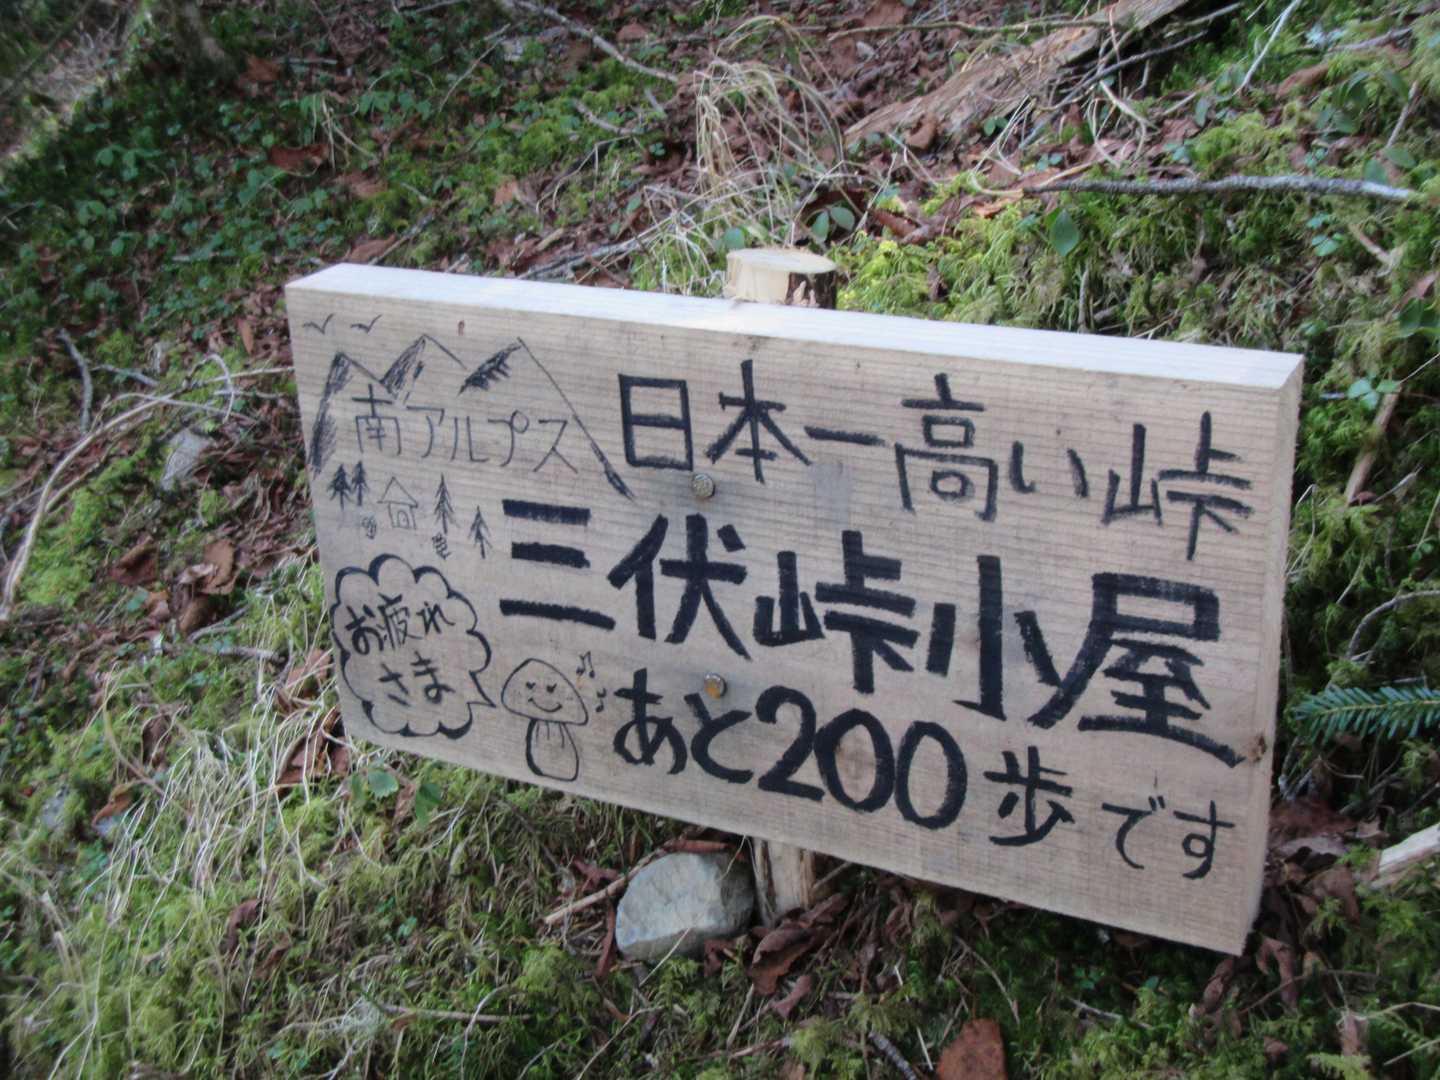 南アルプス
日本一高い峠
三伏峠小屋
お疲れ
さま
あと200歩です